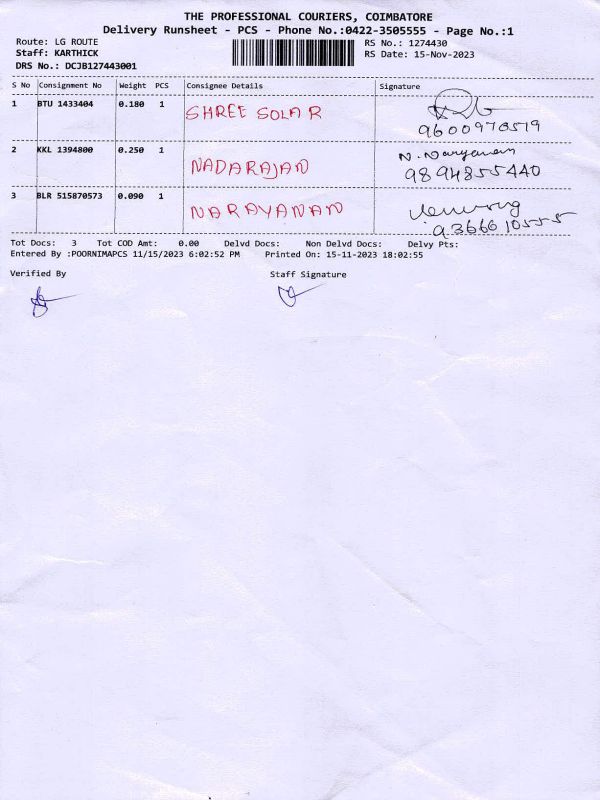 THE PROFESSIONAL COURIERS, COIMBATORE
Delivery Runsheet - PCS - Phone No.:0422-3505555 - Page No.:1
Route: LG ROUTE RS No.: 1274430
Staff: KARTHICK RS Date: 15-Nov-2023
DRS No.: DCJB127443001
S No Consignment No Weight PCS Consignee Details Signature
1 BTU 1433404 0.180 1 SHREE SOLAR
9600970519
2 KKL 1394800 0.250 1 NADARAJAN
9894855440
3 BLR 515870573 0.090 1 NARAYANAN
9366610555
Tot Docs: 3 Tot COD Amt: 0.00 Delvd Docs: Non Delvd Docs: Delvy Pts:
Entered By :POORNIMAPCS 11/15/2023 6:02:52 PM Printed On: 15-11-2023 18:02:55
Verified By Staff Signature